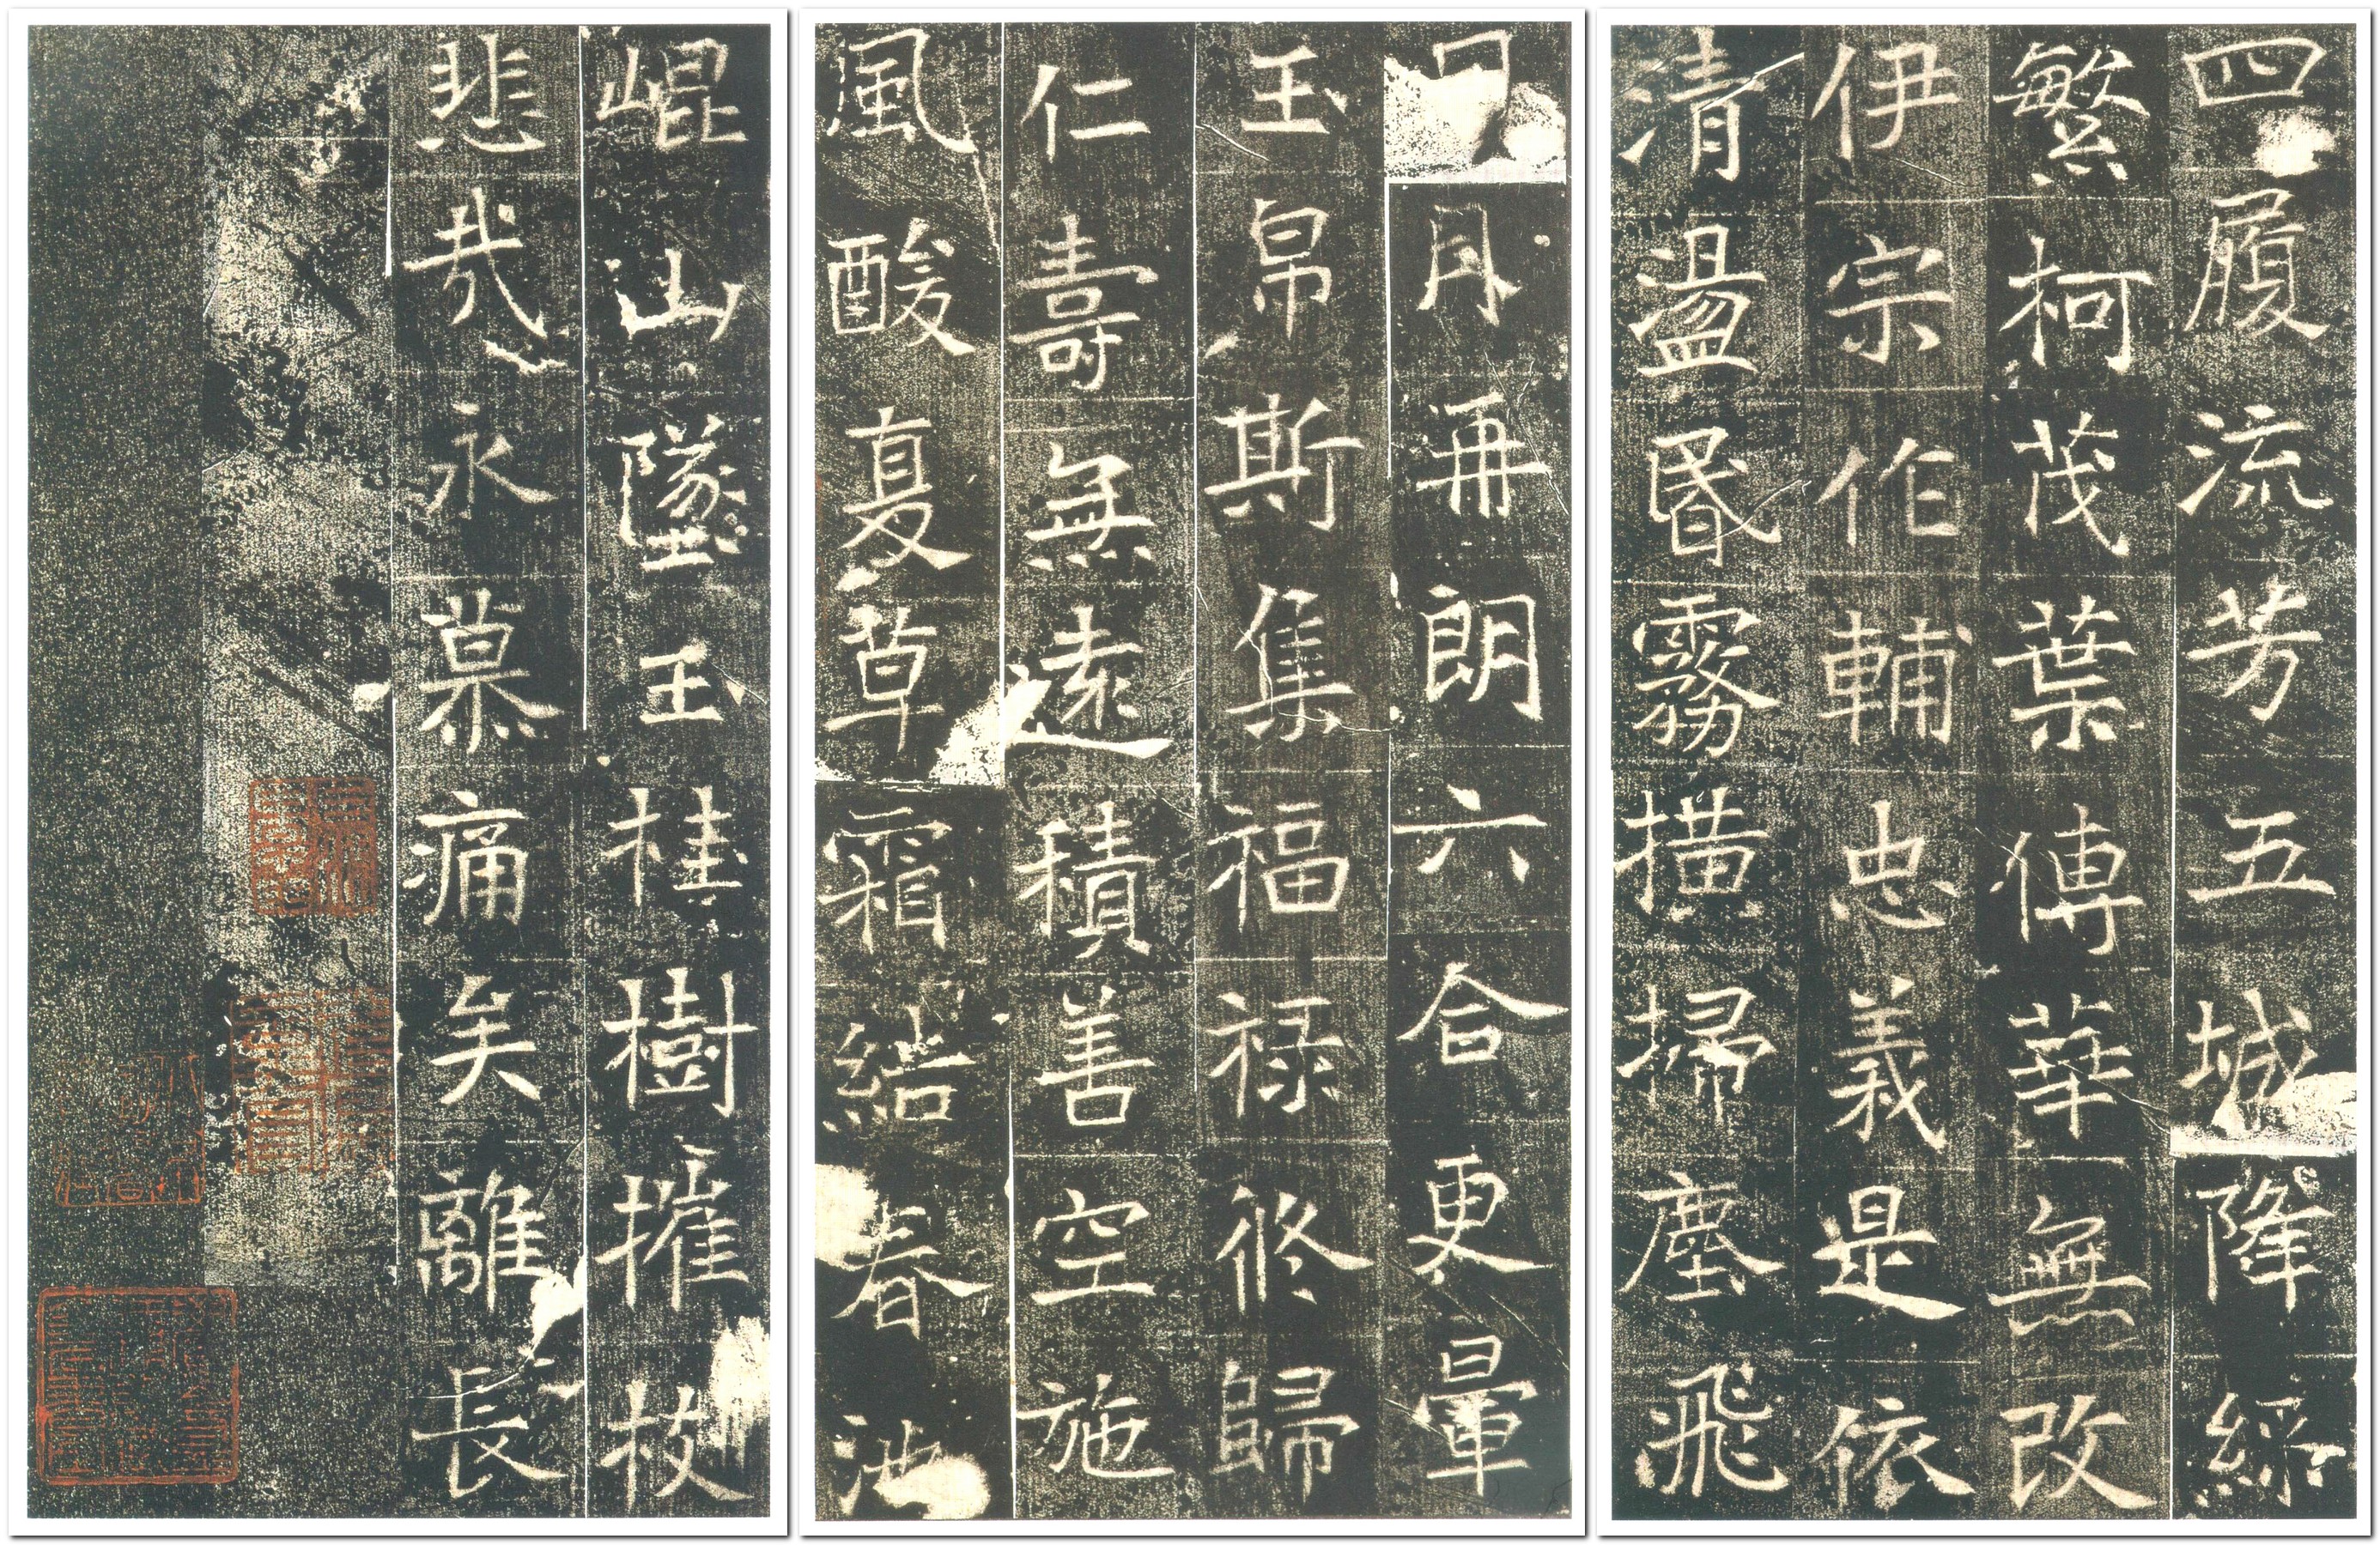 四履流芳五城降綵
繁柯茂葉傳華無改
伊宗作輔忠義是依
清盪昏霧掃塵飛
月再朗六合更暈
玉帛斯集福祿修歸
仁壽無遠積善空施
風酸夏草霜結春池
崐山墜玉桂樹摧枝
悲哉永慕痛矣離長